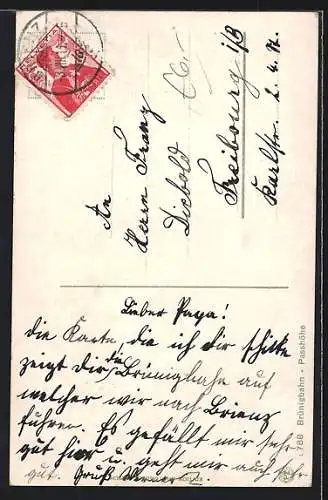 An
Herrn Franz
Diebold
Freibourg i/B
Karlstr. 2.4.
Lieber Papa!
die Karte, die ich Dir schicke
zeigt Dir die Brünigbahn auf
welcher wir nach Brienz
fuhren. Es gefällt mir sehr
gut hier u. geht mir auch sehr
gut. Gruß
7788 Brünigbahn - Passhöhe